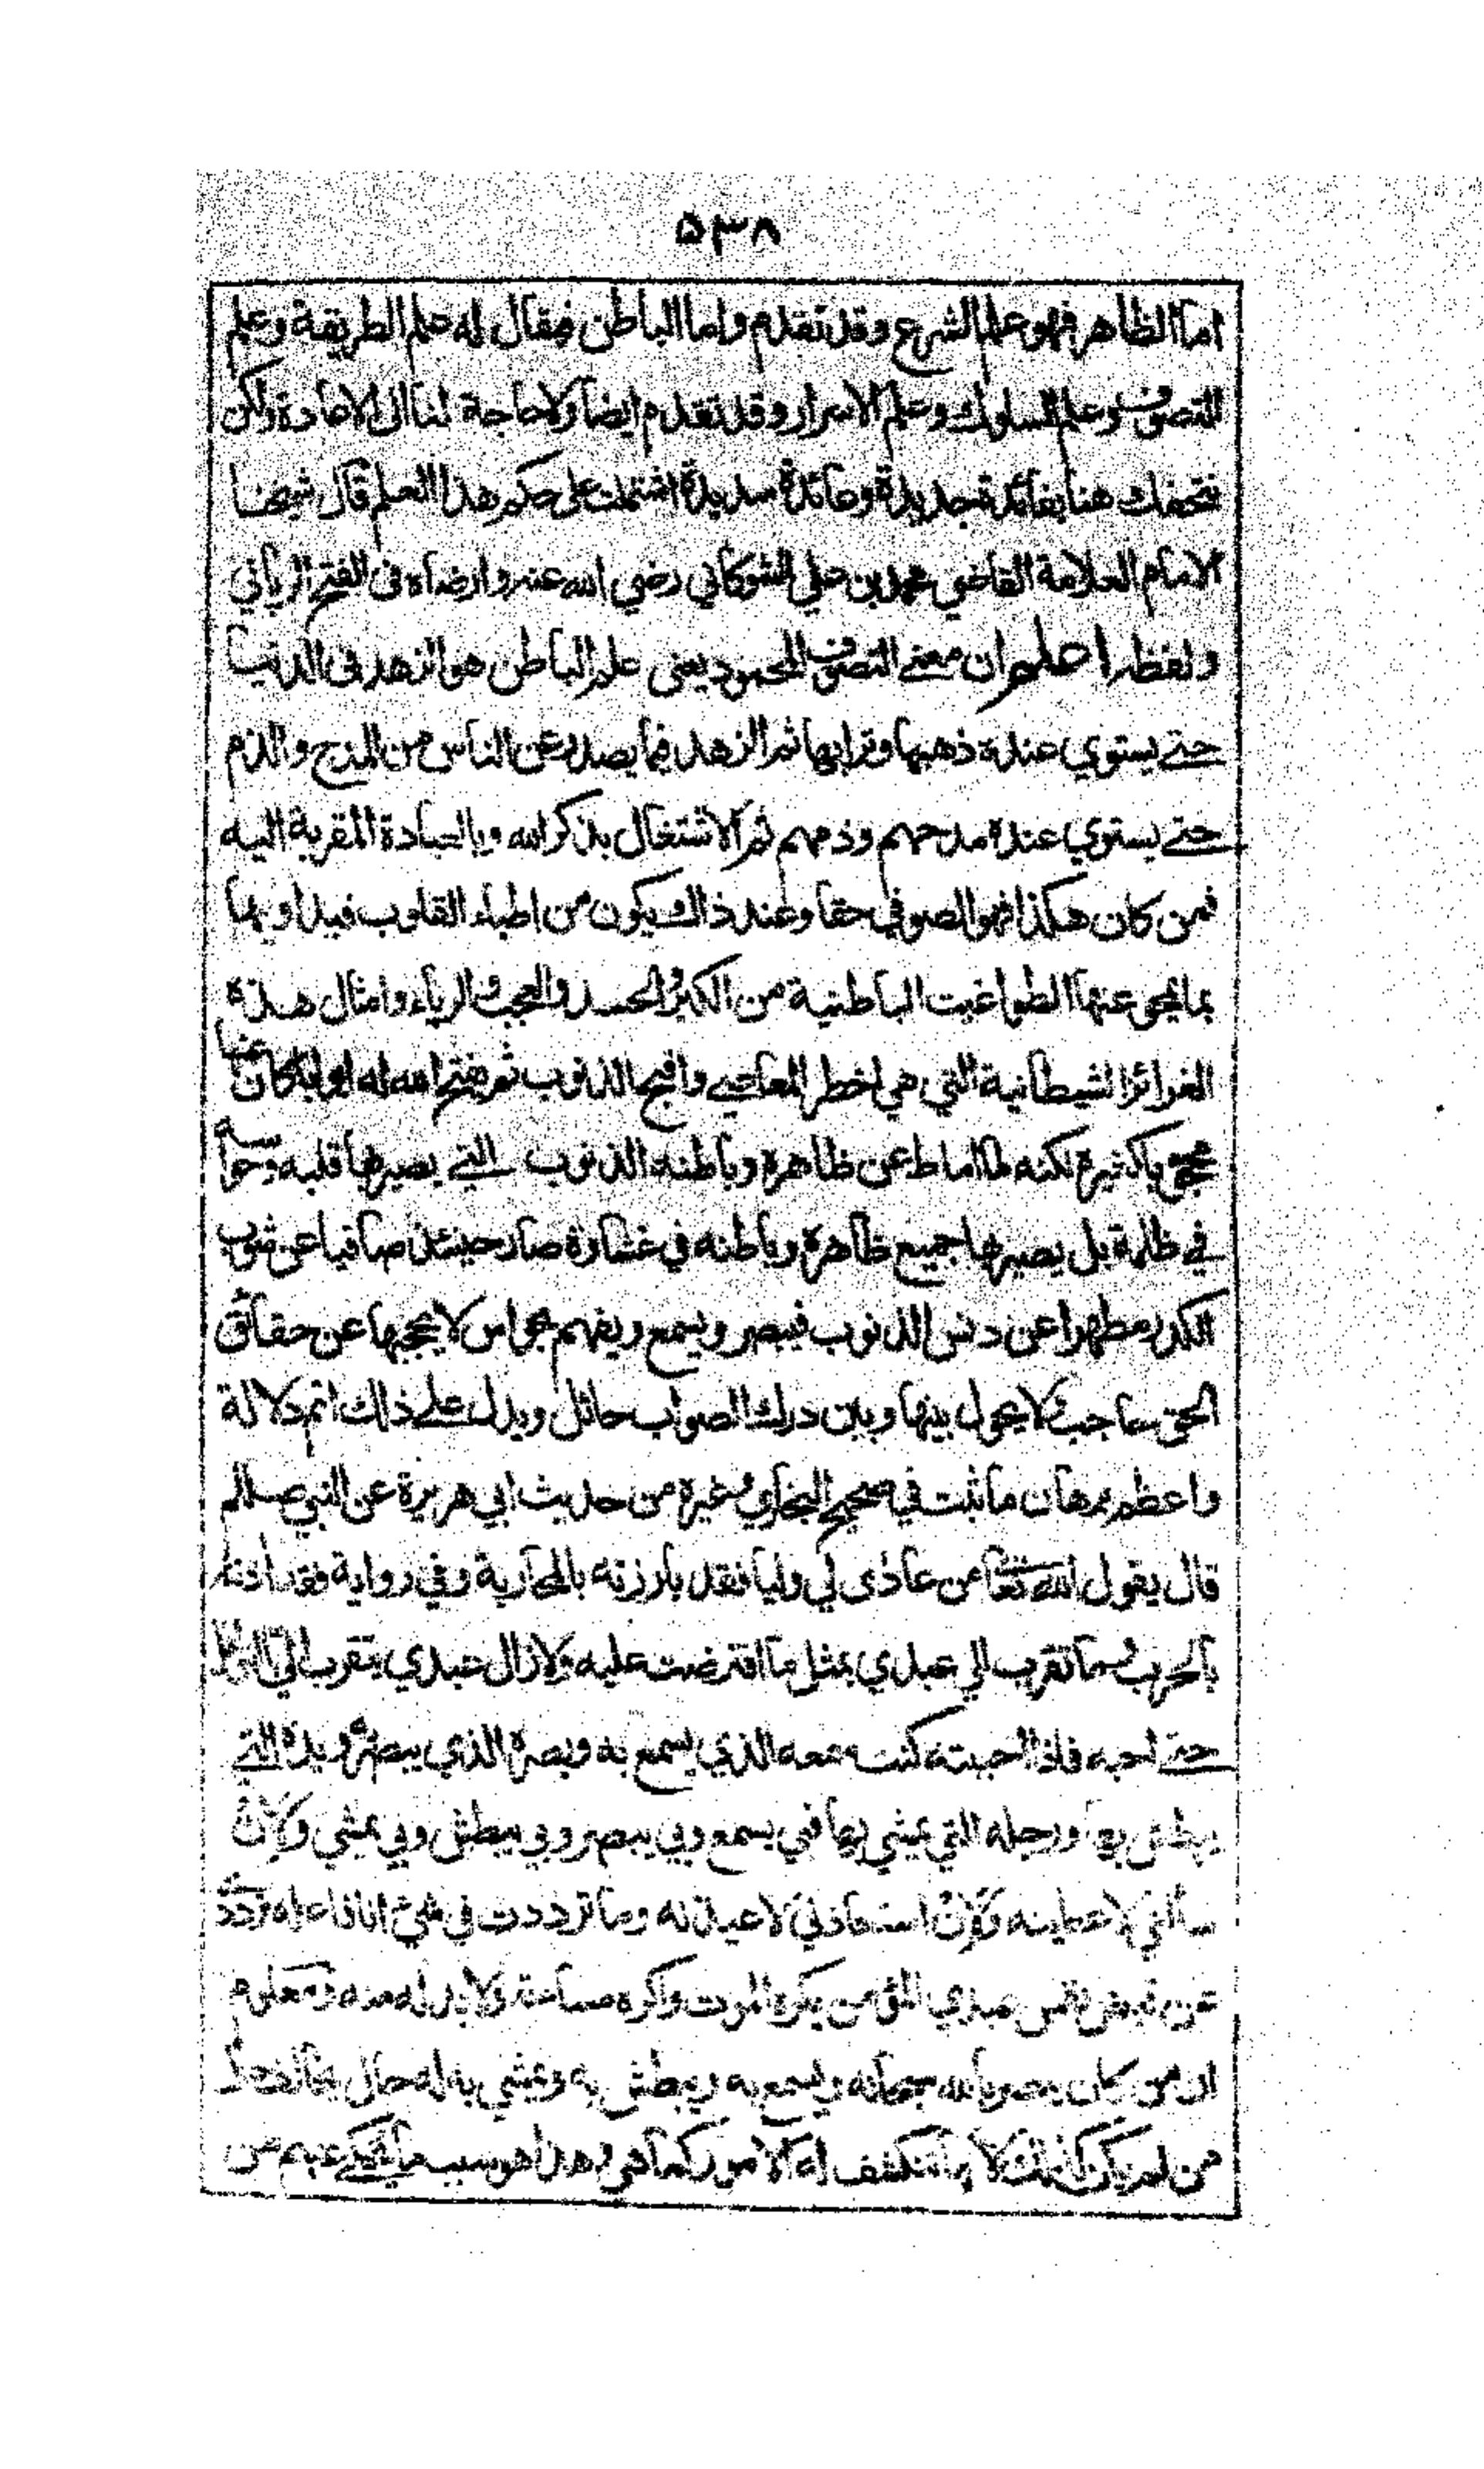 ۵۳۸
اما الظاهر فهو علم الشرع وقد تقدم واما الباطن فيقال له علم الطريقة وعلم
التصوف وعلم السلوك وعلم الاسرار وقد تقدم ايضا ولا حاجة لنا الى الاعادة ولكن
نتحفك هنا بفائدة جديدة وعائدة سديدة اشتملت على حكم هذا العلم قال شيخنا
الامام العلامة القاضي محمد بن علي الشوكاني رضي الله عنه وارضاه فى الفتح الرباني
ولفظه اعلم ان معنى التصوف المحمود يعنى علم الباطن هو الزهد فى الدنيا
حتى يستوي عنده ذهبها وترابها ثم الزهد فيما يصدر عن الناس من المدح والذم
حتى يستوي عنده مدحهم وذمهم ثم الاشتغال بذكر الله وبالعبادة المقربة اليه
فمن كان هكذا فهو الصوفي حقا وعند ذاك يكون من اطباء القلوب فيداويها
بما يمحو عنها الطواغيت الباطنية من الكبر والحسد والعجب والرياء وامثال هذه
الغرائز الشيطانية التي هي اخطر المعاصي واقبح الذنوب ثم يفتح الله له ابوابا كان عنها
محجوبا كغيره لكنه لما اماط عن ظاهره وباطنه الذنوب التي يصير بها قلبه وحواسه
في ظلمة بل يصير بها جميع ظاهره وباطنه في غشاوة صار حينئذ صافيا عن شوب
الكدر مطهرا عن دنس الذنوب فيبصر ويسمع ويفهم بحواس لا يحجبها عن حقائق
الحق حاجب ولا يحول بينها وبين درك الصواب حائل ويدل على ذلك اتم دلالة
واعظم برهان ما ثبت في صحيح البخاري وغيره من حديث ابي هريرة عن النبي صلعم
قال يقول الله تعا من عادى لي وليا فقد بارزته بالمحاربة وفي رواية فقد اذنته
بالحرب وما تقرب الي عبدي بمثل ما افترضت عليه ولا زال عبدي يتقرب الي بالنوافل
حتى احبه فاذا احببته كنت سمعه الذي يسمع به وبصره الذي يبصر به ويده التي
يبطش بها ورجله التي يمشي بها فبي يسمع وبي يبصر وبي يبطش وبي يمشي ولئن
سألني لاعطينه ولئن استعاذني لاعيذنه وما ترددت في شيء انا فاعله ترددي
عن قبض نفس عبدي المؤمن يكره الموت واكره مساءته ولا بد له منه ومعلوم
ان من كان يبصر بالله سبحانه ويسمع به ويبطش به ويمشي به له حال يخالف حال
من لم يكن كذلك لانها تنكشف له الامور كما هي وهذا هو سبب ما يحكى عنهم من